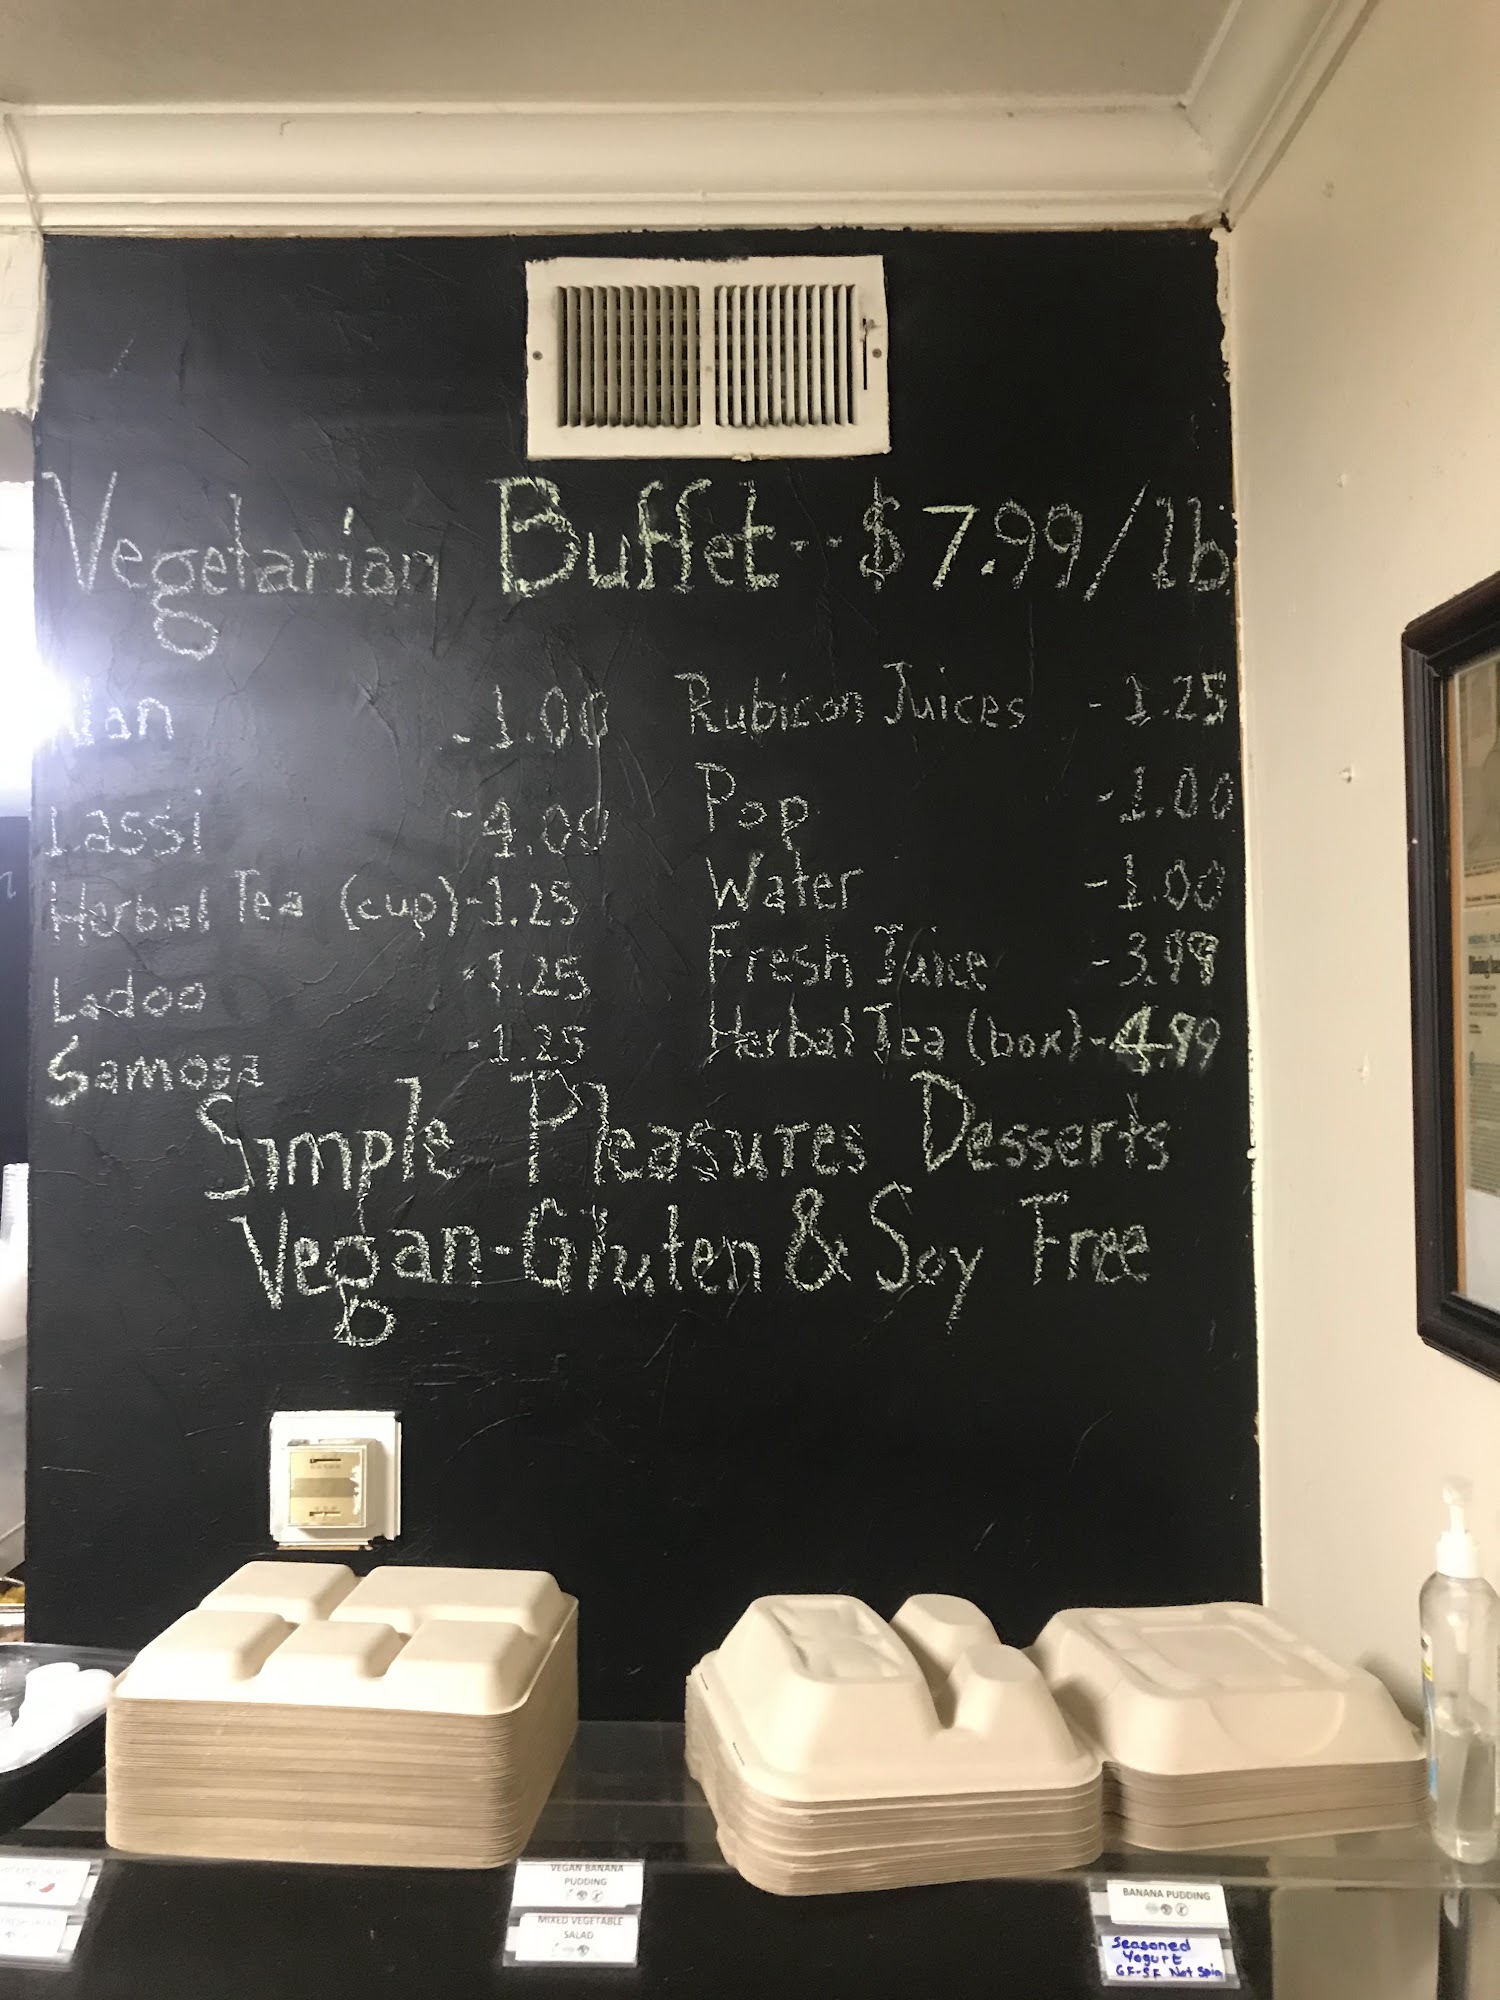 Vegetarian Buffet -- $7.99/lb.
Nan -1.00
Lassi -4.00
Herbal Tea (cup) -1.25
Ladoo -1.25
Samosa -1.25
Rubicon Juices -1.25
Pop -1.00
Water -1.00
Fresh Juice -3.99
Herbal Tea (box) -4.99
Simple Pleasures Desserts
Vegan-Gluten & Soy Free
VEGAN BANANA
PUDDING
MIXED VEGETABLE
SALAD
BANANA PUDDING
Seasoned
Yogurt
GF-SF Not Spicy